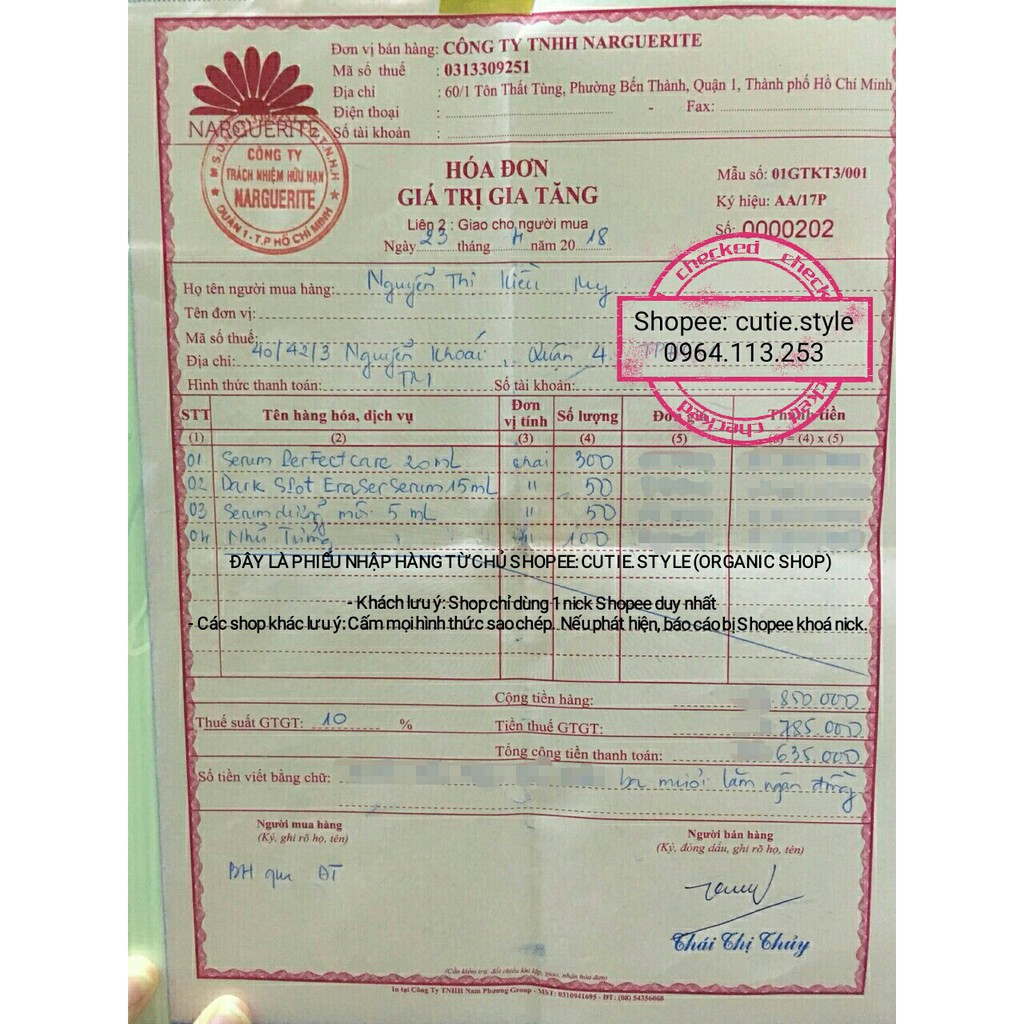 NARGUERITE
Đơn vị bán hàng: CÔNG TY TNHH NARGUERITE
Mã số thuế : 0313309251
Địa chỉ : 60/1 Tôn Thất Tùng, Phường Bến Thành, Quận 1, Thành phố Hồ Chí Minh
Điện thoại : - Fax:
Số tài khoản :
CÔNG TY
TRÁCH NHIỆM HỮU HẠN
NARGUERITE
QUẬN 1 - T.P HỒ CHÍ MINH
HÓA ĐƠN
GIÁ TRỊ GIA TĂNG
Liên 2 : Giao cho người mua
Ngày 23 tháng năm 20 18
Mẫu số: 01GTKT3/001
Ký hiệu: AA/17P
Số: 0000202
checked checked
Shopee: cutie.style
0964.113.253
checked checked
Họ tên người mua hàng: Nguyễn Thị Kiều My
Tên đơn vị:
Mã số thuế:
Địa chỉ: 40/42/3 Nguyễn Khoái, Quận 4
Hình thức thanh toán: TM Số tài khoản:
STT Tên hàng hóa, dịch vụ Đơn vị tính Số lượng Đơn giá Thành tiền
(1) (2) (3) (4) (5) = (4) x (5)
01 Serum Perfect care 20mL chai 300
02 Dark Spot Eraser Serum 15mL " 50
03 Serum dưỡng môi 5 mL " 50
04 Nhũ Trứng 100
ĐÂY LÀ PHIẾU NHẬP HÀNG TỪ CHỦ SHOPEE: CUTIE.STYLE (ORGANIC SHOP)
- Khách lưu ý: Shop chỉ dùng 1 nick Shopee duy nhất
- Các shop khác lưu ý: Cấm mọi hình thức sao chép. Nếu phát hiện, báo cáo bị Shopee khoá nick.
Cộng tiền hàng: 850.000
Thuế suất GTGT: 10 % Tiền thuế GTGT: 785.000
Tổng cộng tiền thanh toán: 635.000
Số tiền viết bằng chữ: ba mươi lăm ngàn đồng
Người mua hàng
(Ký, ghi rõ họ, tên)
BH qua ĐT
Người bán hàng
(Ký, đóng dấu, ghi rõ họ, tên)
Thái Thị Thủy
(Cần kiểm tra, đối chiếu khi lập, giao, nhận hóa đơn)
In tại Công Ty TNHH Nam Phương Group - MST: 0310941695 - ĐT: (08) 54356068